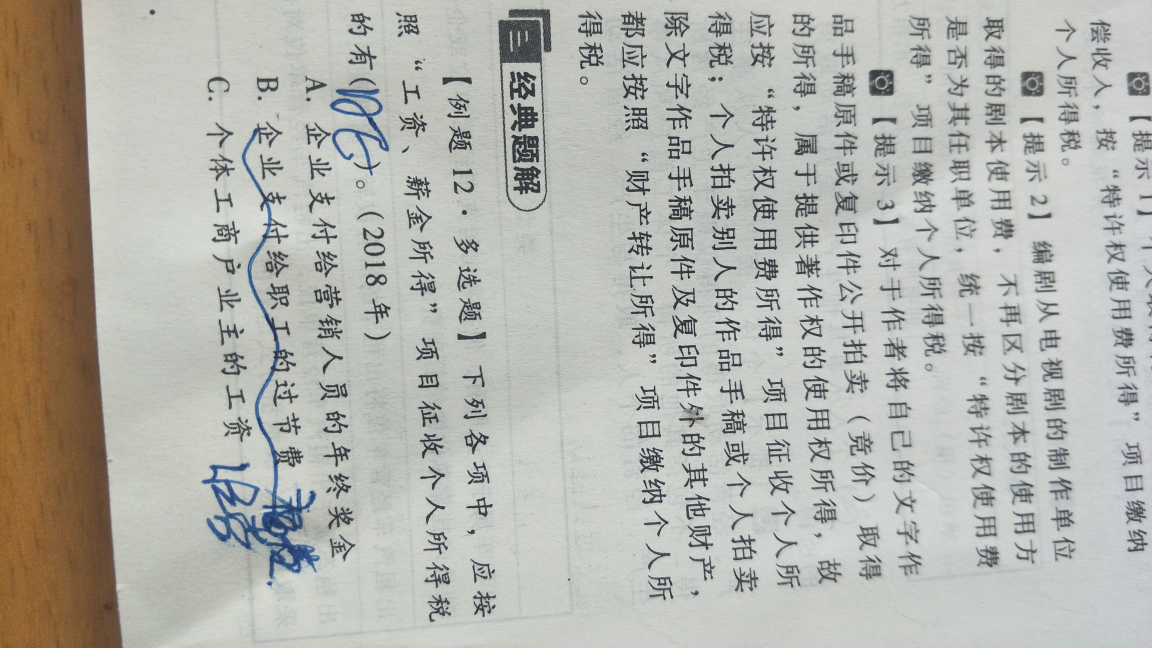 【提示 1】个人取得
偿收入，按“特许权使用费所得”项目缴纳
个人所得税。
【提示 2】编剧从电视剧的制作单位
取得的剧本使用费，不再区分剧本的使用方
是否为其任职单位，统一按“特许权使用费
所得”项目缴纳个人所得税。
【提示 3】对于作者将自己的文字作
品手稿原件或复印件公开拍卖（竞价）取得
的所得，属于提供著作权的使用权所得，故
应按“特许权使用费所得”项目征收个人所
得税；个人拍卖别人的作品手稿或个人拍卖
除文字作品手稿原件及复印件外的其他财产，
都应按照“财产转让所得”项目缴纳个人所
得税。
三 经典题解
【例题 12·多选题】下列各项中，应按
照“工资、薪金所得”项目征收个人所得税
的有( )。(2018 年)
A. 企业支付给营销人员的年终奖金
B. 企业支付给职工的过节费
C. 个体工商户业主的工资 经营